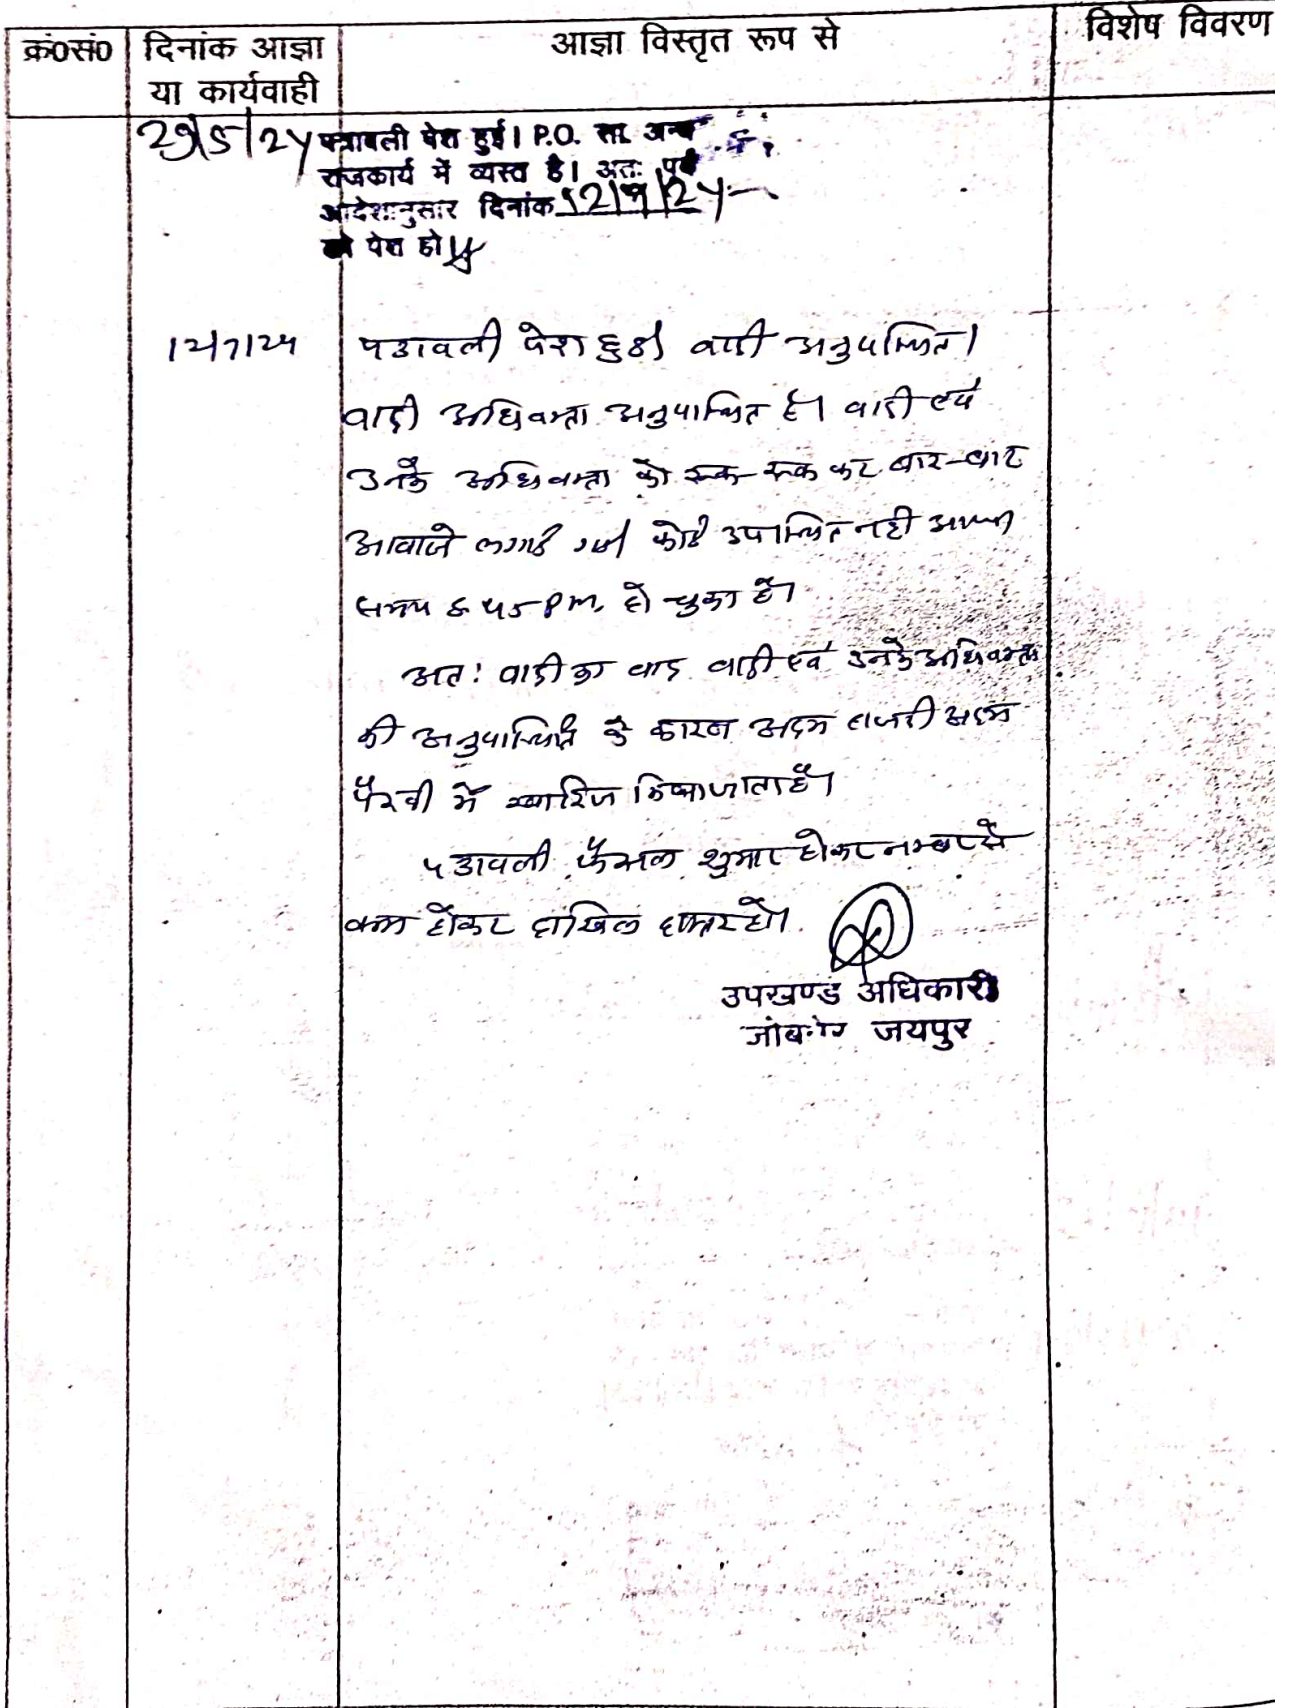 क्रं०सं० दिनांक आज्ञा आज्ञा विस्तृत रूप से विशेष विवरण
या कार्यवाही
29/5/24 पत्रावली पेश हुई। P.O. सा. अन्य
राजकार्य में व्यस्त है। अतः पूर्व
आदेशानुसार दिनांक 12/7/24
को पेश हो
12/7/24 पत्रावली पेश हुई। वादी अनुपस्थित।
वादी अधिवक्ता अनुपस्थित है। वादी एवं
उनके अधिवक्ता को रूक-रूक कर बार-बार
आवाजे लगाई गई। कोई उपस्थित नही आया
समय 5 45 PM. हो चुका है।
अतः वादी का वाद वादी एवं उनके अधिवक्ता
की अनुपस्थिति के कारण अदम हाजरी अदम
पैरवी में खारिज किया जाता है।
पत्रावली फैसल शुमार होकर नम्बर से
कम होकर दाखिल दफ्तर हो।
उपखण्ड अधिकारी
जोबनेर जयपुर